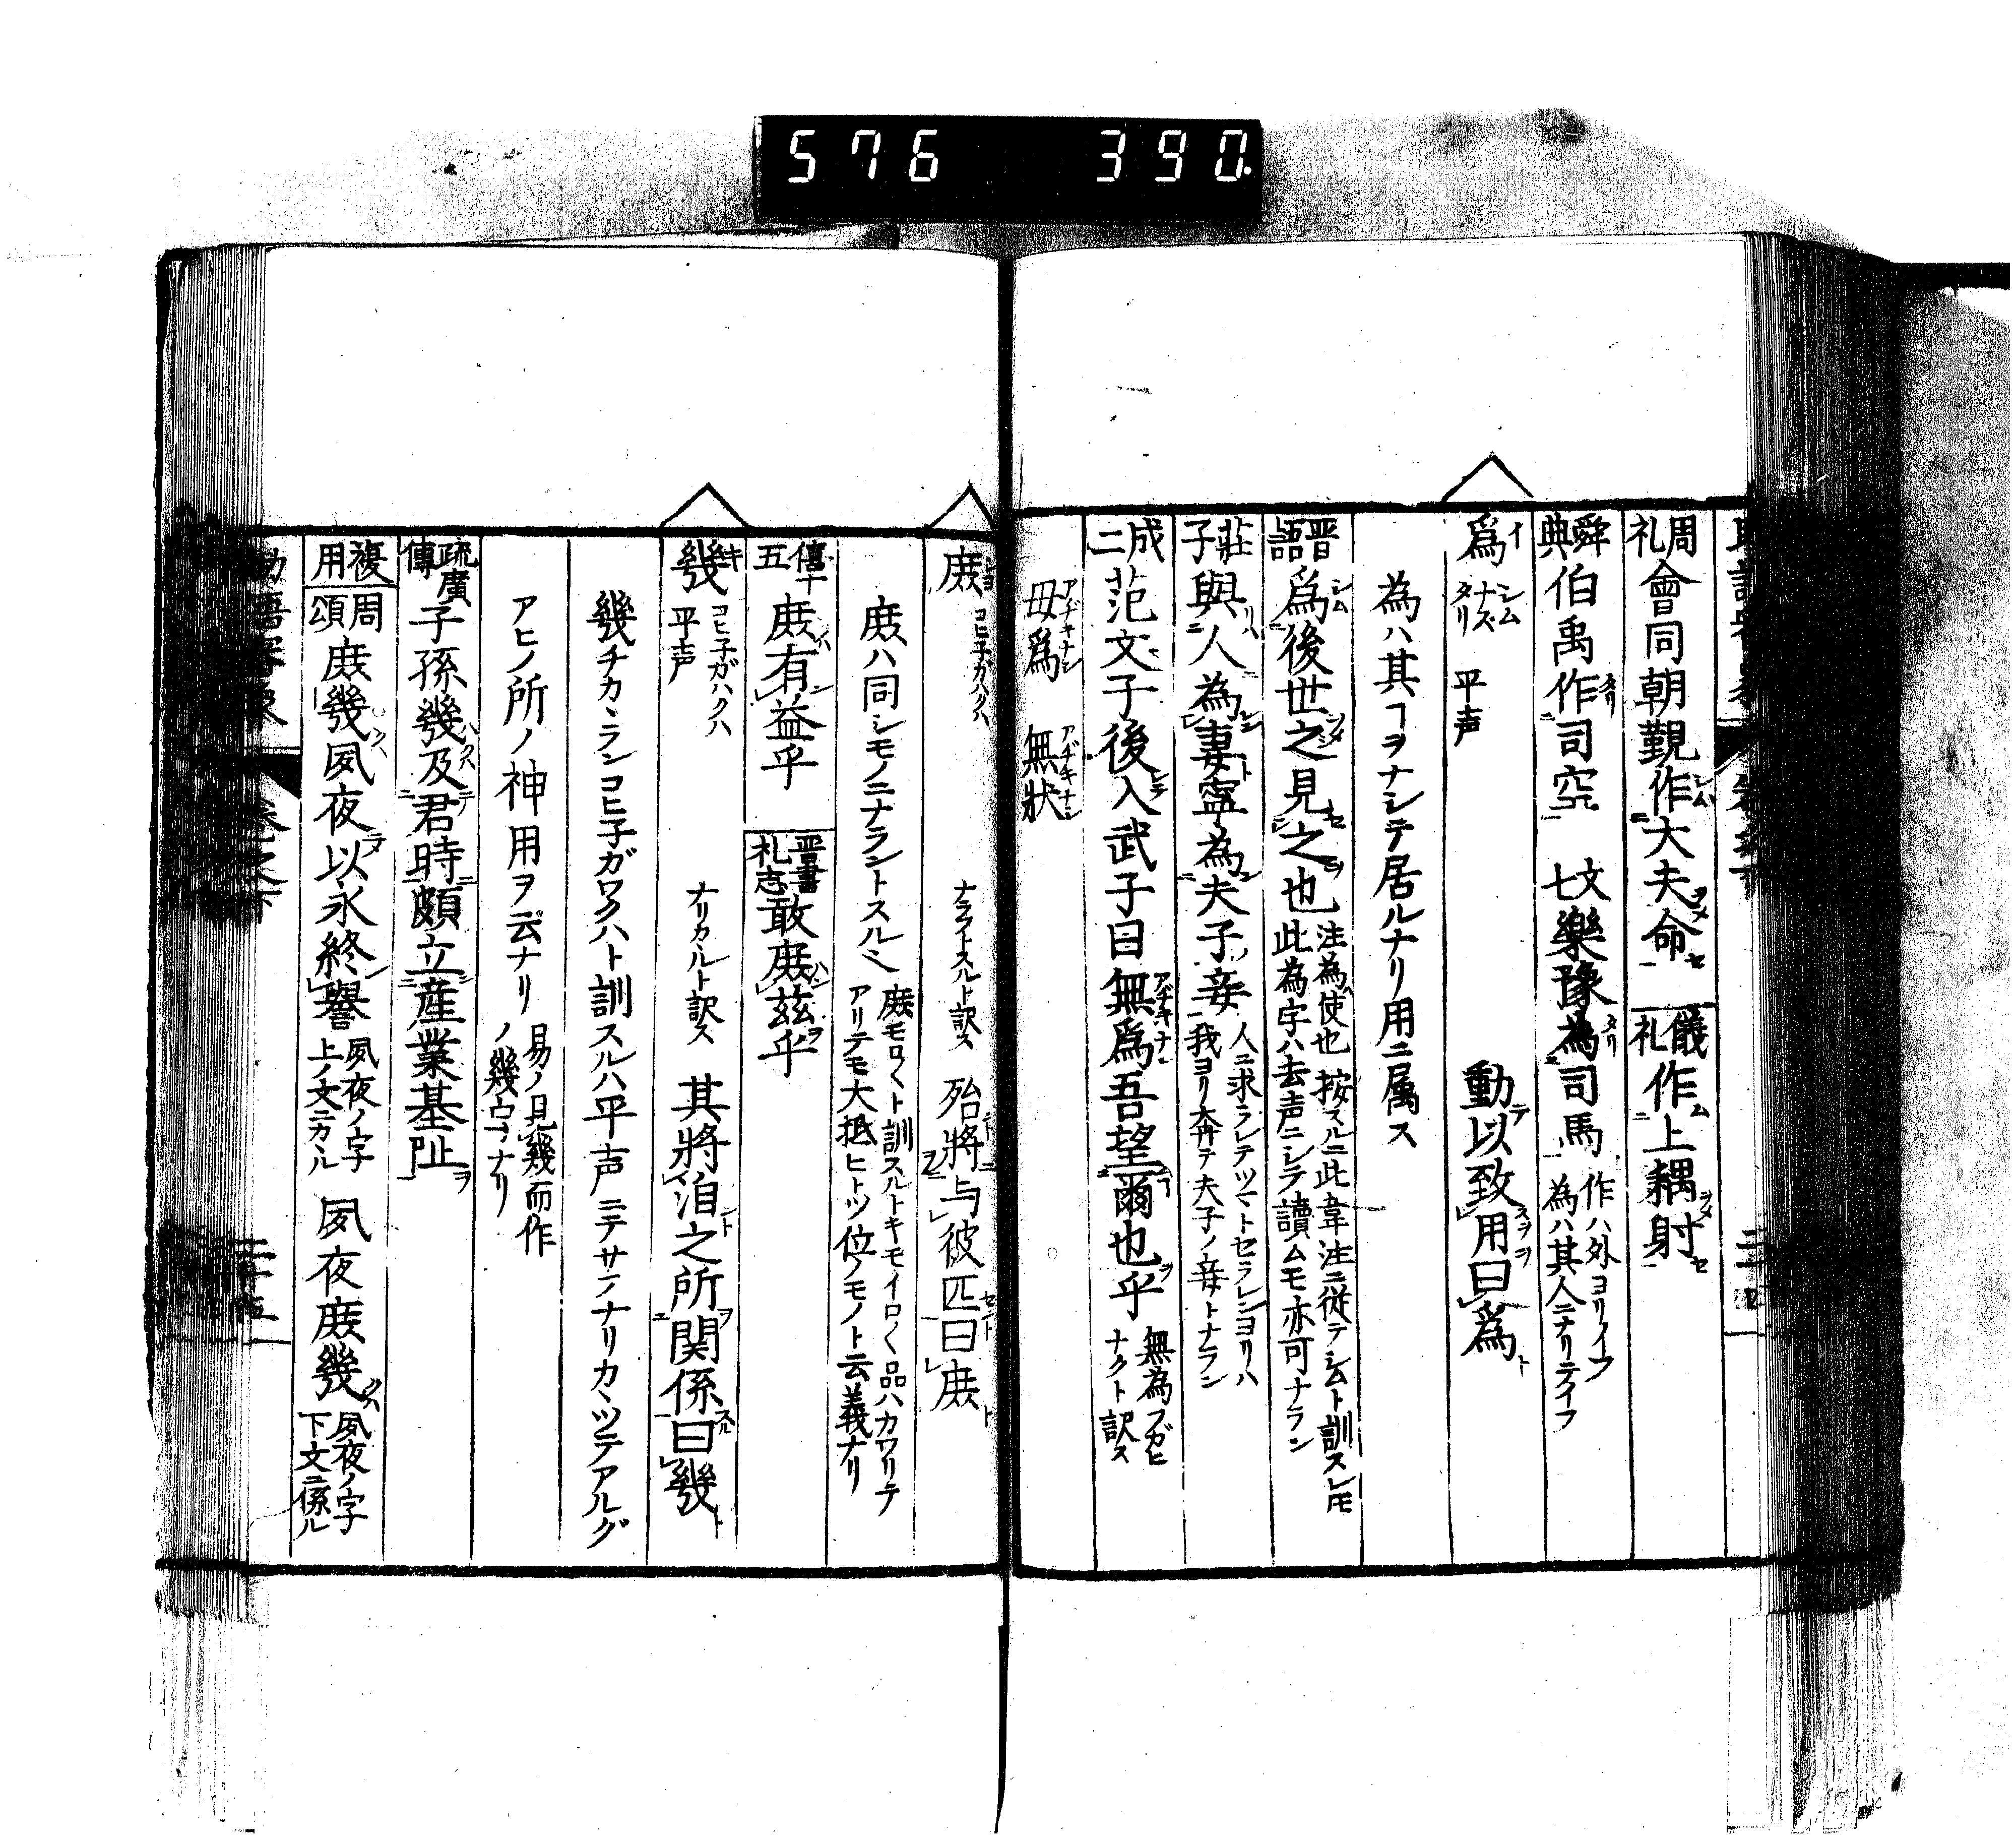 576 390
周礼 會同朝覲作大夫命 儀礼 作上耦射
舜典 伯禹作司空 文七 樂豫為司馬 作ハ外ヨリイフ 為ハ其人ニナリテイフ
爲 イ シム ナス タリ 平声 動以致用曰爲
為ハ其ヿヲナシテ居ルナリ用ニ属ス
晋語 爲後世之見之也 注為使也 按スルニ此韋注ニ從テシムト訓スレ𪜈 此為字ハ去声ニシテ讀ムモ亦可ナラン
莊子 與人為妻寧為夫子妾 人ニ求ラレテツマトセラレンヨリハ 我ヨリ奔テ夫子ノ妾トナラン
成二 范文子後入武子曰無爲吾望爾也乎 無為フガヒ ナクト訳ス
毋爲 アヂキナシ 無狀 アヂキナシ
庶 コヒ子ガハクハ ナラフトスルト訳ス 殆將与彼匹曰庶
庶ハ同シモノニナラントスル也 庶モロ〱ト訓スルトキモイロ〱品ハカワリテ アリテモ大抵ヒトツ位ノモノト云義ナリ
僖十五 庶有益乎 晋書礼志 敢庶茲乎
幾 キ コヒ子ガハクハ 平声 ナリカヽルト訳ス 其將洎之所関係曰幾
幾チカヽラン コヒ子ガワクハト訓スルハ平声ニテサノナリカヽツテアルグ
アヒノ所ノ神用ヲ云ナリ 易ノ見幾而作 ノ幾モコヽナリ
疏廣傳 子孫幾及君時頗立産業基阯
複用 周頌 庶幾夙夜以永終譽 夙夜ノ字 上ノ文ニカヽル 夙夜庶幾 夙夜ノ字 下文ニ係ル